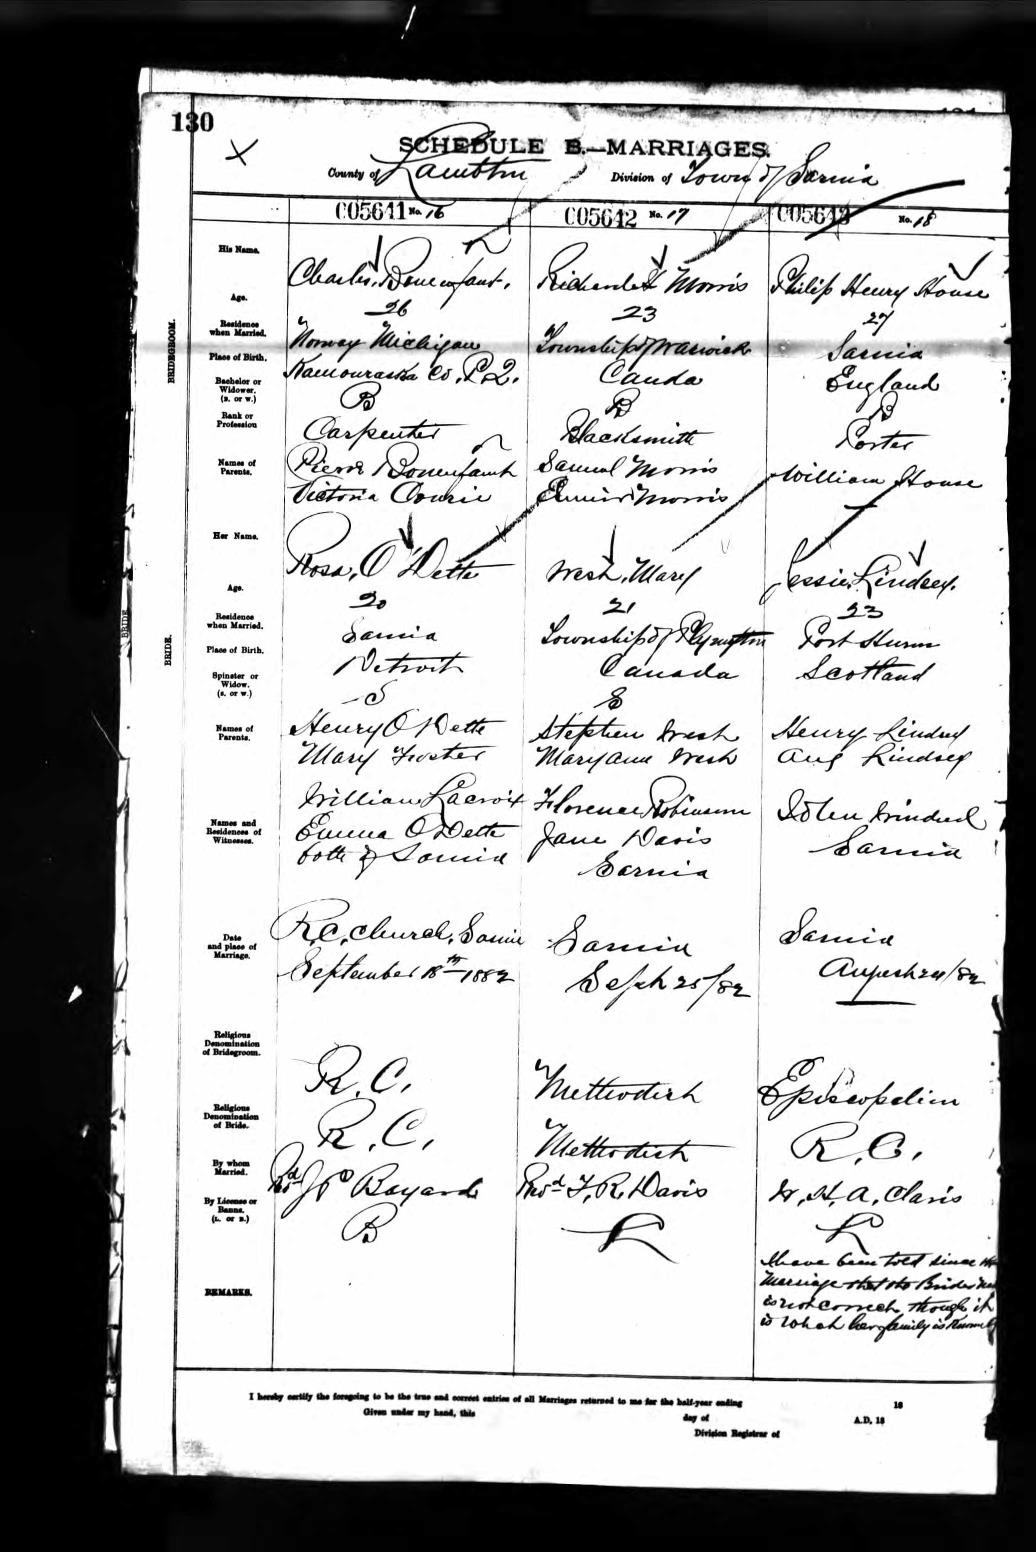 130
SCHEDULE B.—MARRIAGES.
County of Lambton Division of Town of Sarnia
005641 No. 16
His Name. Charles Bonenfant.
Age. 26
Residence when Married. Norway Michigan
Place of Birth. Kamouraska Co. P.Q.
Bachelor or Widower. (B. or W.) B
Rank or Profession Carpenter
Names of Parents. Pierre Bonenfant
Victoria
Her Name. Rosa, O'Dette
Age. 20
Residence when Married. Sarnia
Place of Birth. Detroit
Spinster or Widow. (S. or W.) S
Names of Parents. Henry O'Dette
Mary Foster
Names and Residences of Witnesses. William Lacroix
Emma O'Dette
both of Sarnia
Date and place of Marriage. R.C. Church, Sarnia
September 18th 1882
Religious Denomination of Bridegroom. R.C.
Religious Denomination of Bride. R.C.
By whom Married. Rvd Bayard
By License or Banns. (L. or B.) B
REMARKS.
005642 No. 17
Morris
23
Township of Warwick
Canda
B
Blacksmith
Samuel Morris
Morris
West, Mary
21
Township of Plympton
Canada
S
Stephen West
Mary Ann West
Florence Robinson
Jane Davis
Sarnia
Sarnia
Sept 25/82
Methodist
Methodist
Revd T. R. Davis
L
005643 No. 18
Philip Henry House
27
Sarnia
England
B
Porter
William House
Jessie Lindsey.
23
Port Huron
Scotland
Henry Lindsey
Lindsey
John
Sarnia
Sarnia
August 24/82
Episcopelian
R.C.
L
I have been told since the
Marriage that the Brides
is not correct though it
is what her family is
BRIDEGROOM.
BRIDE.
BRIDE
I hereby certify the foregoing to be the true and correct entries of all Marriages returned to me for the half-year ending 18
Given under my hand, this day of A.D. 18
Division Registrar of